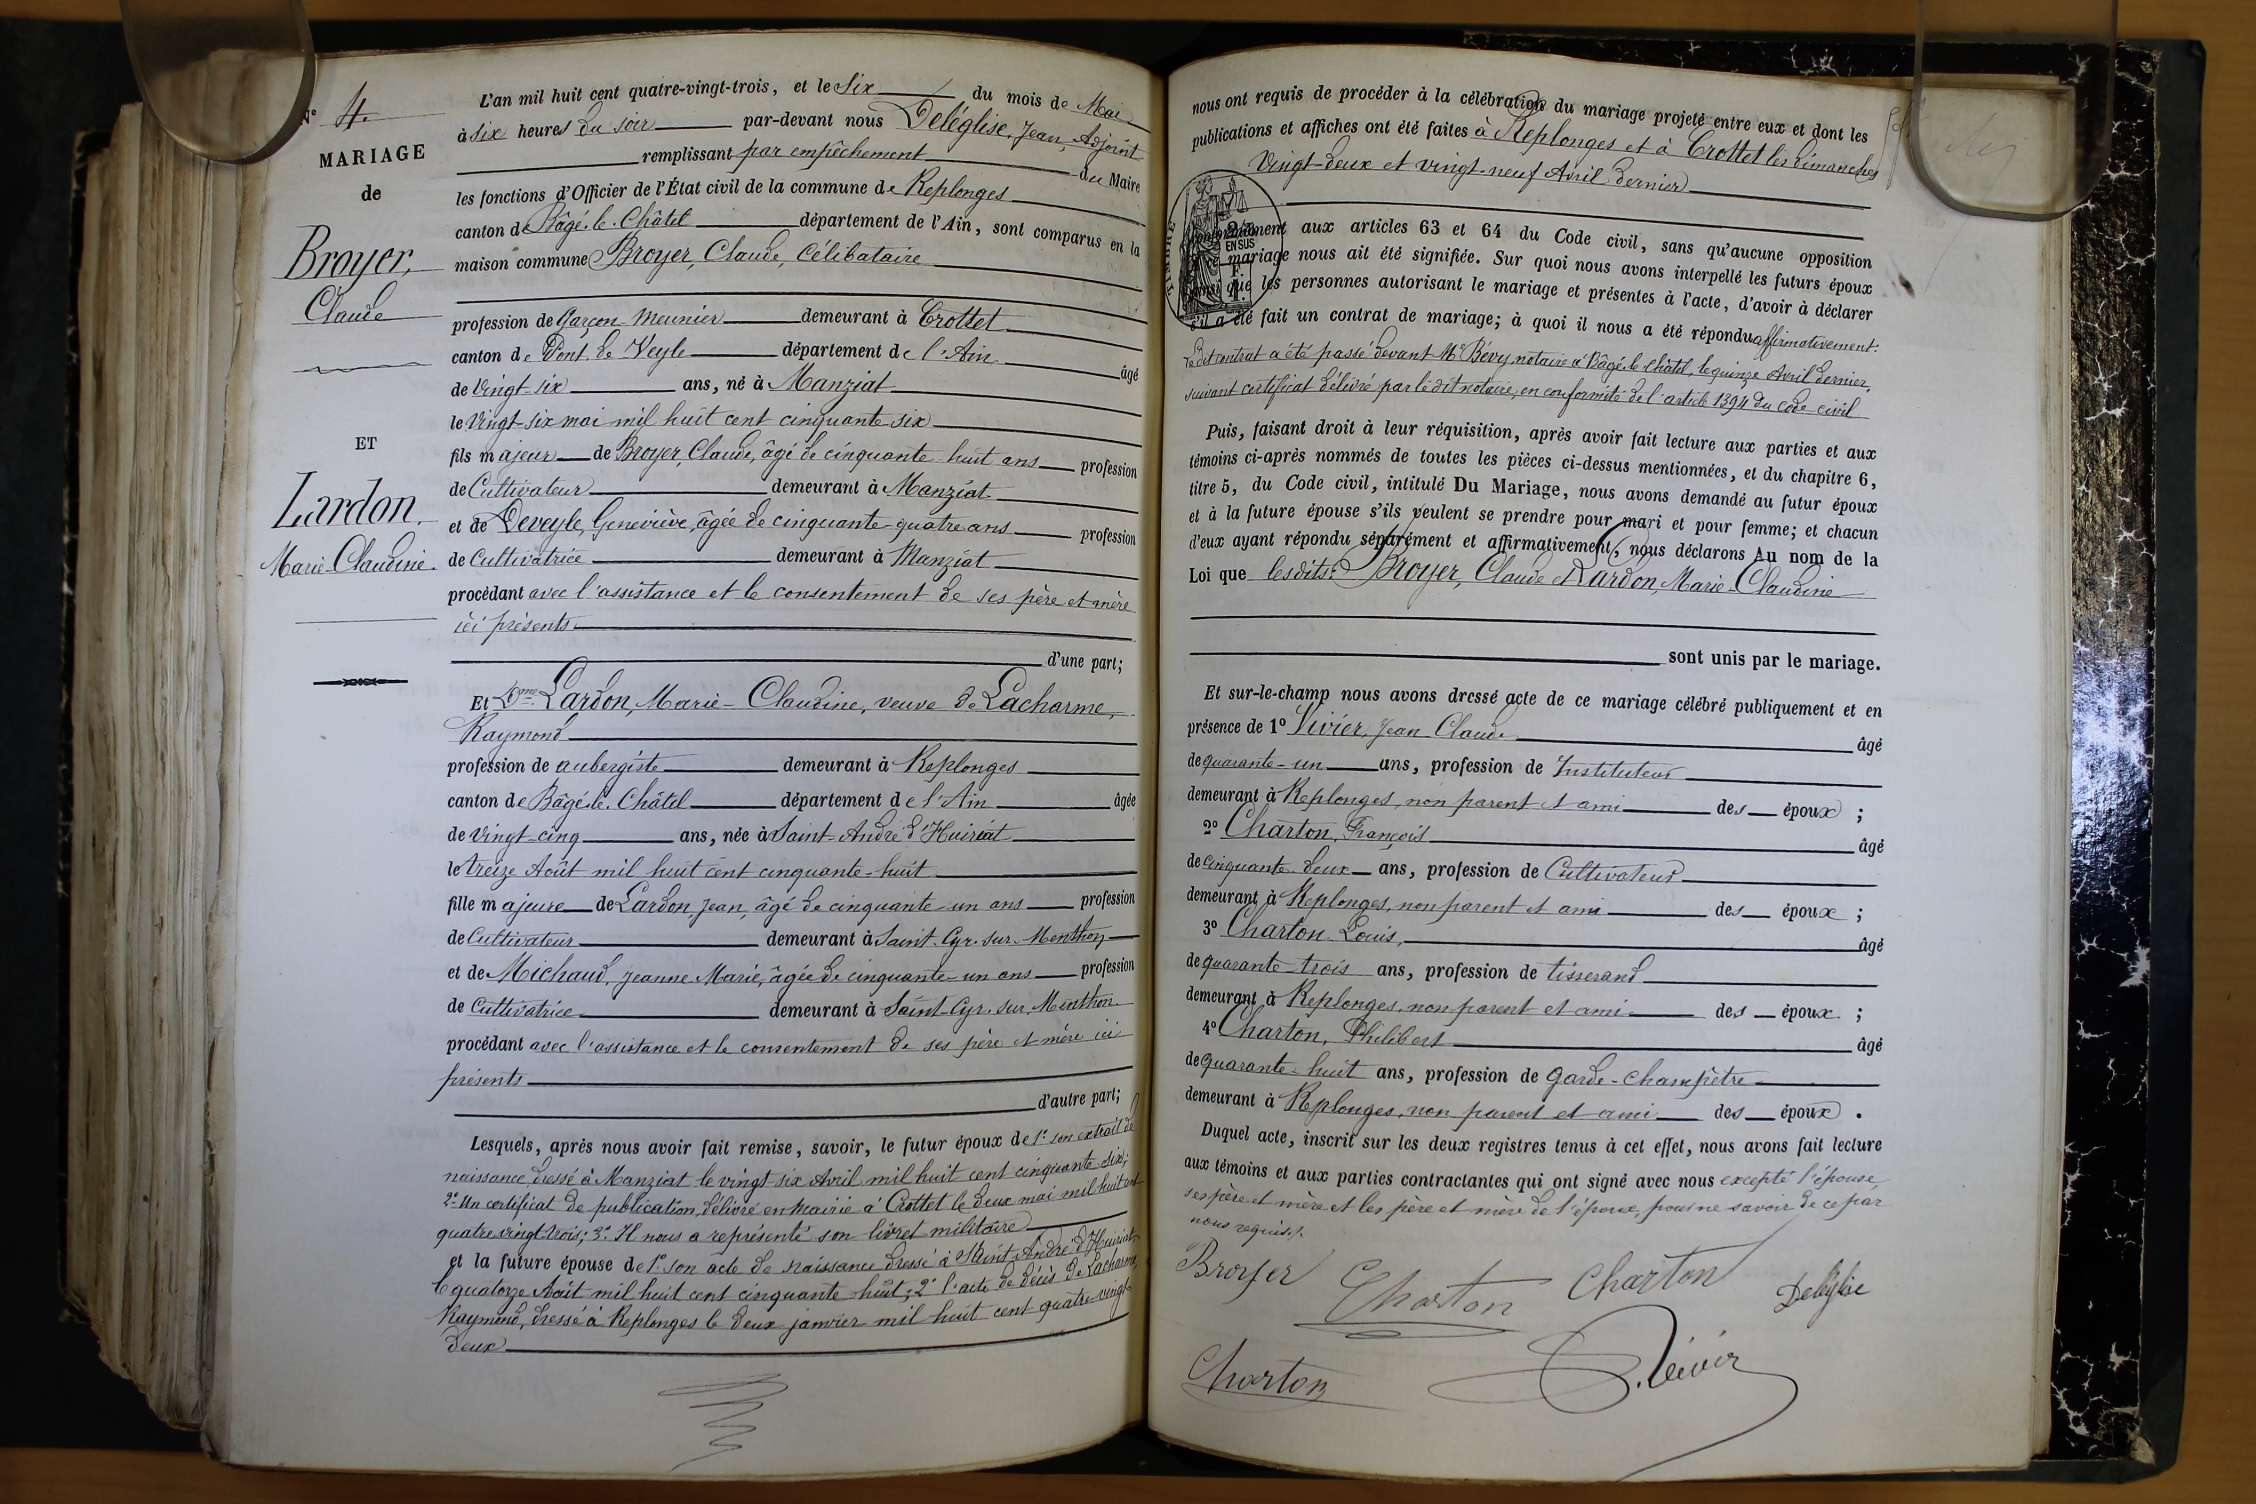 N° 4.
MARIAGE
de
Broyer,
Claude
ET
Lardon
Marie-Claudine.
L'an mil huit cent quatre-vingt-trois, et le Six du mois de Mai
à six heures du soir par-devant nous Deléglise, Jean, Adjoint
remplissant par empêchement du Maire
les fonctions d'Officier de l'État civil de la commune de Replonges
canton de Bâgé-le-Châtel département de l'Ain, sont comparus en la
maison commune Broyer, Claude, Célibataire
profession de Garçon-Meunier demeurant à Crottet
canton de Pont de Veyle département de l'Ain âgé
de Vingt-six ans, né à Manziat
le Vingt-six mai mil huit cent cinquante six
fils majeur de Broyer, Claude, âgé de cinquante huit ans profession
de Cultivateur demeurant à Manziat
et de Deveyle, Geneviève, âgée de cinquante quatre ans profession
de Cultivatrice demeurant à Manziat
procédant avec l'assistance et le consentement de ses père et mère
ici présents
d'une part;
Et Dme Lardon, Marie-Claudine, veuve de Lacharme,
Raymond
profession de aubergiste demeurant à Replonges
canton de Bâgé-le-Châtel département de l'Ain âgée
de vingt-cinq ans, née à Saint-André d'Huiriat
le treize Août mil huit cent cinquante-huit
fille majeure de Lardon, Jean, âgé de cinquante un ans profession
de Cultivateur demeurant à Saint-Cyr-sur-Menthon
et de Michaud, Jeanne Marie, âgée de cinquante-un ans profession
de Cultivatrice demeurant à Saint-Cyr-sur-Menthon
procédant avec l'assistance et le consentement de ses père et mère ici
présents
d'autre part;
Lesquels, après nous avoir fait remise, savoir, le futur époux de 1° son extrait de
naissance, dressé à Manziat le vingt six Avril mil huit cent cinquante six;
2° Un certificat de publication, délivré en mairie à Crottet le deux mai mil huit cent
quatre vingt-trois; 3° Il nous a représenté son livret militaire
et la future épouse de 1° son acte de naissance dressé à Saint-André d'Huiriat
le quatorze Août mil huit cent cinquante-huit; 2° l'acte de décès de Lacharme,
Raymond, dressé à Replonges le deux janvier mil huit cent quatre vingt-
deux
nous ont requis de procéder à la célébration du mariage projeté entre eux et dont les
publications et affiches ont été faites à Replonges et à Crottet les dimanches
Vingt-deux et vingt-neuf Avril dernier
TIMBRE
EN SUS
aux articles 63 et 64 du Code civil, sans qu'aucune opposition
mariage nous ait été signifiée. Sur quoi nous avons interpellé les futurs époux
ainsi que les personnes autorisant le mariage et présentes à l'acte, d'avoir à déclarer
s'il a été fait un contrat de mariage; à quoi il nous a été répondu affirmativement:
Le dit contrat a été passé devant Me Bévy, notaire à Bâgé-le-Châtel, le quinze Avril dernier,
suivant certificat délivré par le dit notaire, en conformité de l'article 1394 du Code civil
Puis, faisant droit à leur réquisition, après avoir fait lecture aux parties et aux
témoins ci-après nommés de toutes les pièces ci-dessus mentionnées, et du chapitre 6,
titre 5, du Code civil, intitulé Du Mariage, nous avons demandé au futur époux
et à la future épouse s'ils veulent se prendre pour mari et pour femme; et chacun
d'eux ayant répondu séparément et affirmativement, nous déclarons Au nom de la
Loi que les dits: Broyer, Claude et Lardon, Marie-Claudine
sont unis par le mariage.
Et sur-le-champ nous avons dressé acte de ce mariage célébré publiquement et en
présence de 1° Vivier, Jean Claude âgé
de quarante-un ans, profession de Instituteur
demeurant à Replonges, non parent et ami des époux;
2° Charton, François âgé
de cinquante deux ans, profession de Cultivateur
demeurant à Replonges, non parent et ami des époux;
3° Charton Louis, âgé
de quarante-trois ans, profession de tisserand
demeurant à Replonges, non parent et ami des époux;
4° Charton, Philibert âgé
de Quarante-huit ans, profession de garde-champêtre
demeurant à Replonges, non parent et ami des époux.
Duquel acte, inscrit sur les deux registres tenus à cet effet, nous avons fait lecture
aux témoins et aux parties contractantes qui ont signé avec nous excepté l'épouse
ses père et mère et les père et mère de l'époux, pour ne savoir de ce par
nous requis.
Broyer Charton Charton Deléglise
Charton Vivier